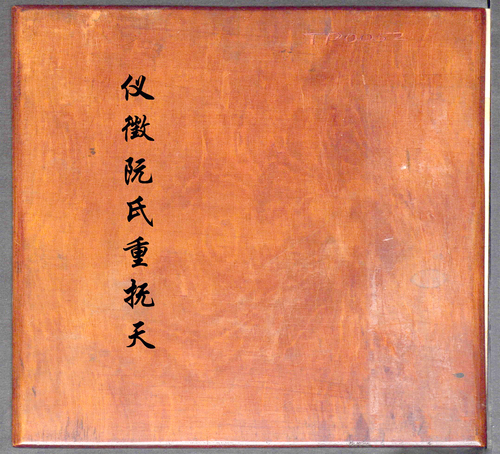 仪徵阮氏重抚天